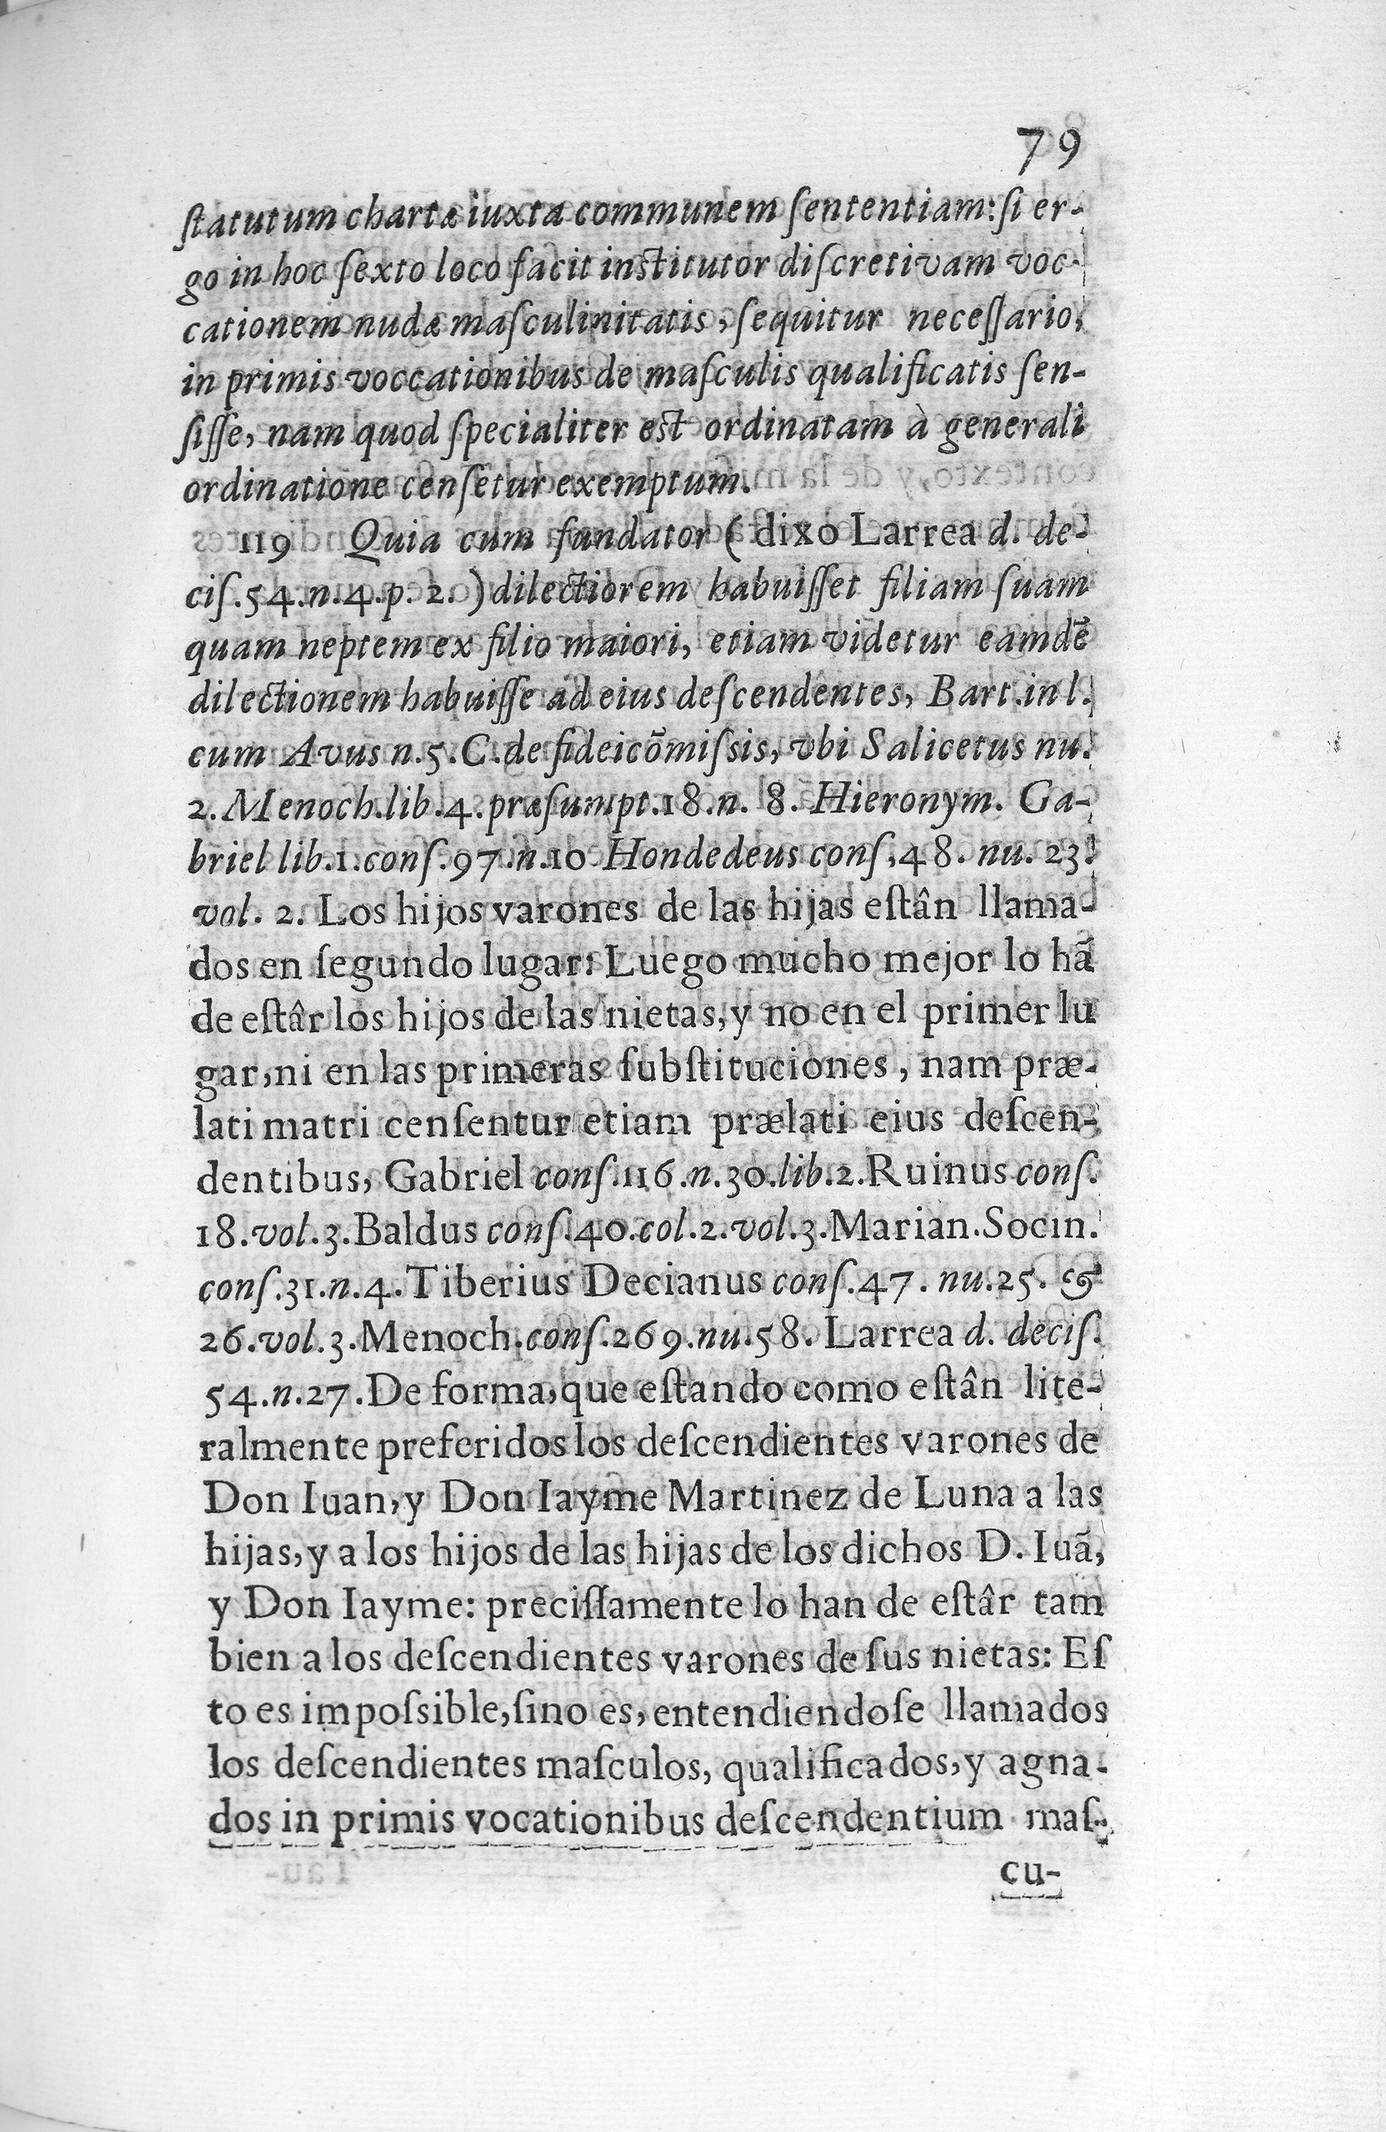 79
ſtatutum chartæ iuxta communem ſententiam: ſi er-
go in hoc ſexto loco facit inſtitutor diſcretivam voc-
cationem nudæ maſculinitatis, ſequitur neceſſario,
in primis voccationibus de maſculis qualificatis ſen-
ſiſſe, nam quod ſpecialiter eſt ordinatam à generali
ordinatione cenſetur exemptum.
119 Quia cum fundator ( dixo Larrea d. de-
ciſ.54.n.4.p. 2. ) dilectiorem habuiſſet filiam ſuam
quam neptem ex filio maiori, etiam videtur eamdē
dilectionem habuiſſe ad eius deſcendentes, Bart.in l.
cum Avus n.5.C.de fideicōmiſsis, vbi Salicetus nu.
2.Menoch.lib.4.præſumpt.18.n. 8. Hieronym. Ga-
briel lib.1.conſ.97.n.10 Hondedeus conſ,48. nu. 23.
vol. 2. Los hijos varones de las hijas eſtân llama-
dos en ſegundo lugar: Luego mucho mejor lo hā
de eſtâr los hijos de las nietas,y no en el primer lu
gar,ni en las primeras ſubſtituciones, nam præ-
lati matri cenſentur etiam prælati eius deſcen-
dentibus, Gabriel conſ.116.n.30.lib.2.Ruinus conſ.
18.vol.3.Baldus conſ.40.col.2.vol.3.Marian.Socin.
conſ.31.n.4.Tiberius Decianus conſ.47. nu.25. &
26.vol.3.Menoch.conſ.269.nu.58. Larrea d. deciſ.
54.n.27.De forma,que eſtando como eſtân lite-
ralmente preferidos los deſcendientes varones de
Don Iuan,y Don Iayme Martinez de Luna a las
hijas,y a los hijos de las hijas de los dichos D. Iuā,
y Don Iayme: preciſſamente lo han de eſtâr tam
bien a los deſcendientes varones de ſus nietas: Eſ
to es impoſsible,ſino es,entendiendoſe llamados
los deſcendientes maſculos, qualificados,y agna-
dos in primis vocationibus deſcendentium maſ-
cu-